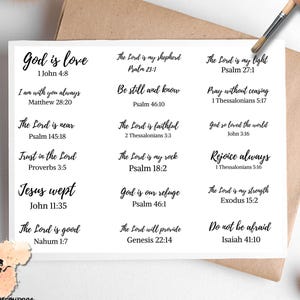 God is love
1 John 4:8
The Lord is my shepherd
Psalm 23:1
The Lord is my light
Psalm 27:1
I am with you always
Matthew 28:20
Be still and know
Psalm 46:10
Pray without ceasing
1 Thessalonians 5:17
The Lord is near
Psalm 145:18
The Lord is faithful
2 Thessalonians 3:3
God so loved the world
John 3:16
Trust in the Lord
Proverbs 3:5
The Lord is my rock
Psalm 18:2
Rejoice always
1 Thessalonians 5:16
Jesus wept
John 11:35
God is our refuge
Psalm 46:1
The Lord is my strength
Exodus 15:2
The Lord is good
Nahum 1:7
The Lord will provide
Genesis 22:14
Do not be afraid
Isaiah 41:10